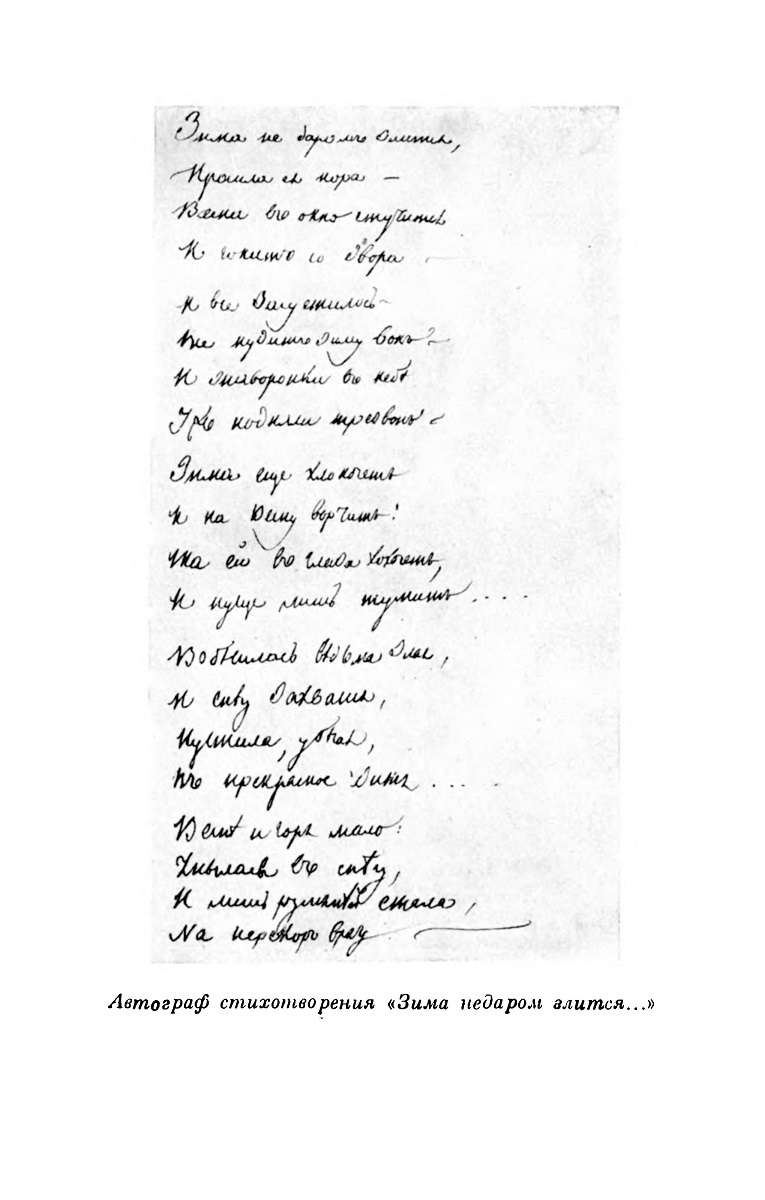 Зима не даромъ злится,
Прошла ея пора —
Весна въ окно стучится
И гонитъ со двора —
И все засуетилось
Все нудитъ Зиму вонъ —
И жаворонки въ небѣ
Ужъ подняли трезвонъ —
Зима еще хлопочетъ
И на Весну ворчитъ!
Та ей въ глаза хохочетъ,
И пуще лишь шумитъ ....
Взбѣсилась вѣдьма злая,
И снѣгу захватя,
Пустила, убѣгая,
Въ прекрасное дитя ....
Веснѣ и горя мало:
Умылася въ снѣгу,
И лишь румянѣй стала,
На перекоръ врагу
Автограф стихотворения «Зима недаром злится...»